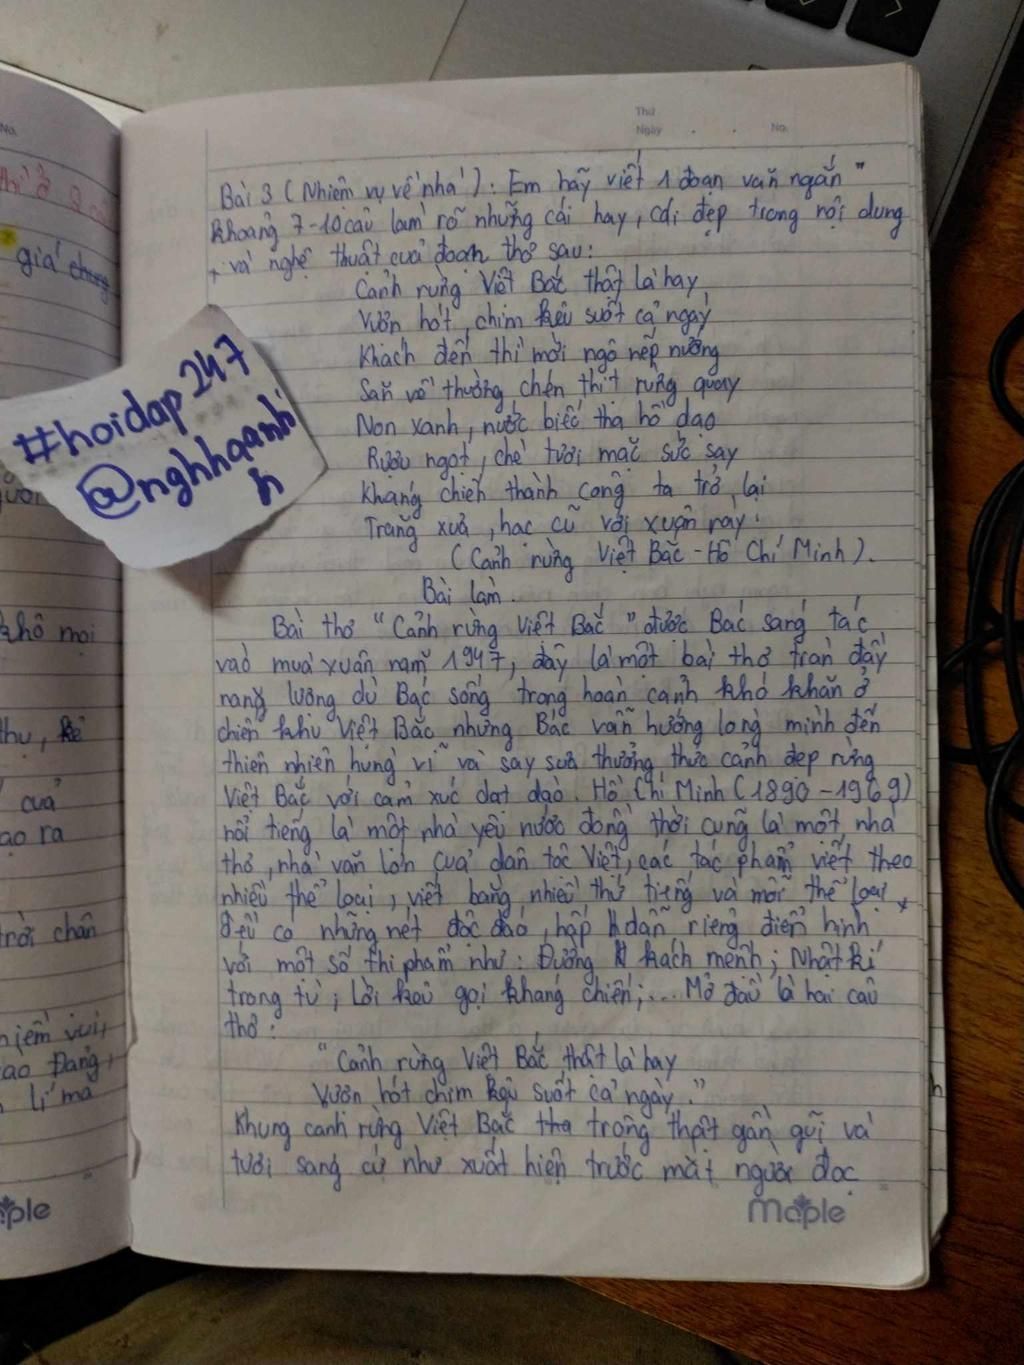 No.
Thứ
Ngày . . No.
giá chung
#hoidap247
@nghhqanh
h
Bài 3 (Nhiệm vụ về nhà): Em hãy viết 1 đoạn văn ngắn"
khoảng 7-10 câu làm rõ những cái hay, cái đẹp trong nội dung
và nghệ thuật của đoạn thơ sau:
Cảnh rừng Việt Bắc thật là hay
Vượn hót, chim kêu suốt cả ngày
Khách đến thì mời ngô nếp nướng
Săn về thường chén thịt rừng quay
Non xanh, nước biếc tha hồ dạo
Rượu ngọt, chè tươi mặc sức say
Kháng chiến thành công ta trở lại
Trăng xưa, hạc cũ với xuân này.
(Cảnh rừng Việt Bắc - Hồ Chí Minh).
Bài làm.
Bài thơ "Cảnh rừng Việt Bắc" được Bác sáng tác
vào mùa xuân năm 1947, đây là một bài thơ tràn đầy
năng lượng dù Bác sống trong hoàn cảnh khó khăn ở
chiến khu Việt Bắc nhưng Bác vẫn hướng lòng mình đến
thiên nhiên hùng vĩ và say sưa thưởng thức cảnh đẹp rừng
Việt Bắc với cảm xúc dạt dào. Hồ Chí Minh (1890-1969)
nổi tiếng là một nhà yêu nước đồng thời cũng là một nhà
thơ, nhà văn lớn của dân tộc Việt, các tác phẩm viết theo
nhiều thể loại, viết bằng nhiều thứ tiếng và mỗi thể loại
đều có những nét độc đáo, hấp dẫn riêng điển hình
với một số thi phẩm như: Đường kách mệnh; Nhật kí
trong tù; Lời kêu gọi kháng chiến;... Mở đầu là hai câu
thơ:
"Cảnh rừng Việt Bắc thật là hay
Vượn hót chim kêu suốt cả ngày."
Khung cảnh rừng Việt Bắc tha trông thật gần gũi và
tươi sáng cứ như xuất hiện trước mắt người đọc
khô mọi
thu, kẻ
của
ạo ra
trời chân
niềm vui,
ao Đảng,
lí mà
Maple